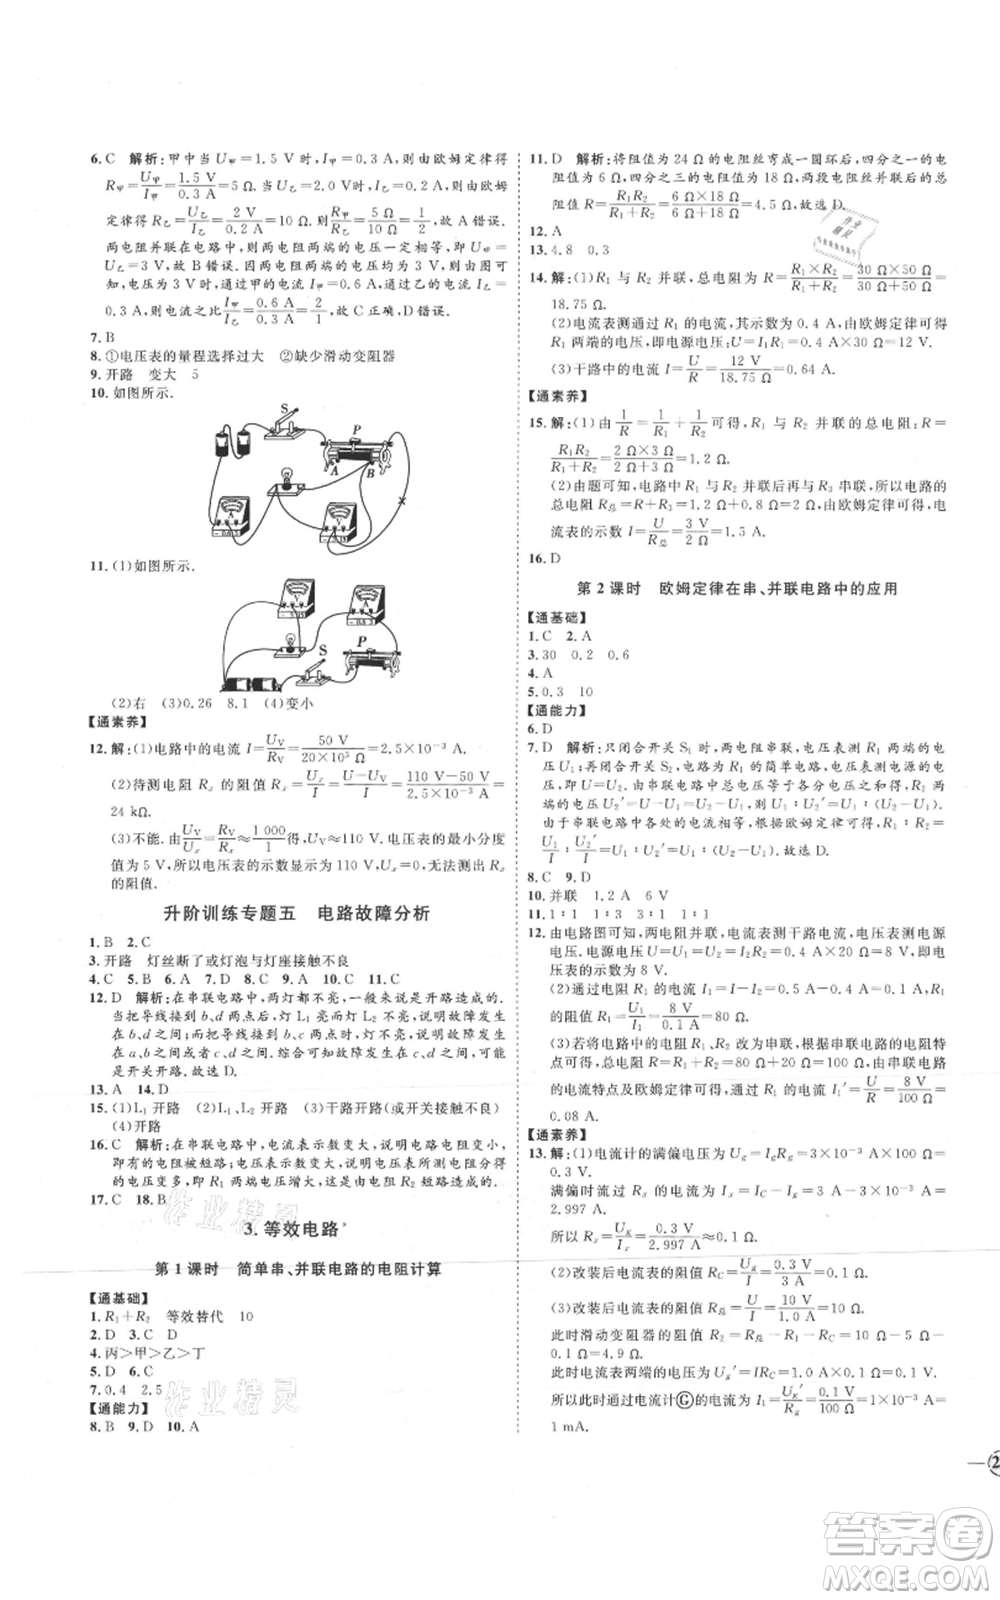 6. C 解析:甲中当 U甲=1.5 V时,I甲=0.3 A,由欧姆定律得
R甲=U甲/I甲=1.5 V/0.3 A=5 Ω;当 U乙=2.0 V时,I乙=0.2 A,由欧姆
定律得 R乙=U乙/I乙=2 V/0.2 A=10 Ω,则R甲/R乙=5 Ω/10 Ω=1/2,故 A 错误.
两电阻并联在电路中时,两电阻两端的电压相等,当
U甲=U乙=3 V时,由图得过甲的电流 I甲=0.6 A,过乙的电流 I乙=
0.3 A,则电流之比I甲/I乙=0.6 A/0.3 A=2/1,故选 C.
7. B
8. ①电压表的量程选择过大 ②缺少滑动变阻器
9. 开路 变大 5
10. 如图所示.
S P
A B
11. (1)如图所示.
S P
(2)右 (3)0.26 8.1 (4)变小
【通素养】
12. 解:(1)电路中的电流 I=UV/RV=50 V/20×10³ Ω=2.5×10⁻³ A.
(2)待测电阻 Rx 的阻值 Rx=Ux/I=U−UV/I=110 V−50 V/2.5×10⁻³ A=
24 kΩ.
(3)不能.由UV/Ux=RV/Rx=1 000/1
值为 5 V,所以电压表的示数显示为 110 V,Ux=0,无法测出 Rx
的阻值.
升阶训练专题五 电路故障分析
1. B 2. C
3. 开路 灯丝断了或灯泡与灯座接触不良
4. C 5. B 6. A 7. D 8. C 9. A 10. C 11. C
12. D 解析:在串联电路中,两灯都不亮,一般来说是开路造成的,
当把导线接到 b、d 两点后,灯 L₁ 亮而灯 L₂ 不亮,说明故障发生
在 b、d 之间;而把导线接到 b、c 两点时,灯不亮,说明故障发生
在 a、b 之间或 c、d 之间.综合可知故障发生在 c、d 之间,只可能
是开关开路.故选 D.
13. A 14. D
15. (1)L₁ 开路 (2)L₁、L₂ 开路 (3)干路开路(或开关接触不良)
(4)开路
16. C 解析:在串联电路中,电流表示数变大,说明电路电阻变小,
即有用电器被短路;电压表示数变大,说明电压表所测用电器没
有被短路,且电压增大.故选 C.
17. C 18. B
3. 等效电路
第 1 课时 简单串、并联电路的电阻计算
【通基础】
1. R₁+R₂ 等效替代 10
2. D 3. C D
4. 丙>甲>乙>丁
5. D 6. C
7. 0.4 2.5
【通能力】
8. B 9. D 10. A
11. D 解析:将阻值为 24 Ω 的电阻丝弯成一圆环后,四分之一的阻
值为 6 Ω,四分之三的电阻值为 18 Ω,两段电阻丝并联后的总
阻值 R=R₁R₂/R₁+R₂=6 Ω×18 Ω/6 Ω+18 Ω=4.5 Ω,故选 D.
12. A
13. 4.8 0.3
14. 解:(1)R₁ 与 R₂ 并联,总电阻为 R=R₁×R₂/R₁+R₂=30 Ω×50 Ω/30 Ω+50 Ω=
18.75 Ω.
(2)电流表测通过 R₁ 的电流,其示数为 0.4 A,由欧姆定律可得
R₁ 两端的电压,即电源电压 U=I₁R₁=0.4 A×30 Ω=12 V.
(3)干路中的电流 I=U/R=12 V/18.75 Ω=0.64 A.
【通素养】
15. 解:(1)由1/R=1/R₁+1/R₂可得,R₁ 与 R₂ 并联的总电阻 R=
R₁R₂/R₁+R₂=2 Ω×3 Ω/2 Ω+3 Ω=1.2 Ω.
(2)由题可知,电路中 R₁ 与 R₂ 并联后再与 R₃ 串联,所以电路的
总电阻 R总=R+R₃=1.2 Ω+0.8 Ω=2 Ω,由欧姆定律可得,电
流表的示数 I=U/R总=3 V/2 Ω=1.5 A.
16. D
第 2 课时 欧姆定律在串、并联电路中的应用
【通基础】
1. C 2. A
3. 30 0.2 0.6
4. A
5. 0.3 10
【通能力】
6. D
7. D 解析:只闭合开关 S₁ 时,两电阻串联,电压表测 R₁ 两端的电
压 U₁;只闭合开关 S₂ 时,电路为 R₂ 的简单电路,电压表测电源电
压,即 U=U₂.因串联电路中总电压等于各分电压之和,所以,R₂ 两
端的电压 U₂′=U−U₁=U₂−U₁,则 R₁∶R₂≠U₁∶U₂,故 A、B、C 错误;
由于串联电路中各处的电流相等,根据欧姆定律可得,R₁∶R₂=
U₁/I∶U₂′/I=U₁∶U₂′=U₁∶(U₂−U₁).故选 D.
8. C 9. D
10. 并联 1.2 A 6 V
11. 1∶1 3∶1 1∶1
12. 由电路图可知,两电阻并联,电流表测干路电流,电压表测电源
电压.(1)电源电压 U=U₂=I₂R₂=0.4 A×20 Ω=8 V,即电
压表的示数为 8 V.
(2)通过电阻 R₁ 的电流 I₁=I−I₂=0.5 A−0.4 A=0.1 A,电阻
R₁=U/I₁=8 V/0.1 A=80 Ω.
(3)若将电路中的电阻 R₁、R₂ 改为串联,则根据串联电路的电阻特
点可得,总电阻 R=R₁+R₂=80 Ω+20 Ω=100 Ω,根据串联电路
的电流特点及欧姆定律可得,通过 R₁ 的电流 I₁′=U/R=8 V/100 Ω=
0.08 A.
【通素养】
13. 解:(1)电流计的满偏电压为 Ug=IgRg=3×10⁻³ A×100 Ω=
0.3 V.
满偏时通过 Rx 的电流为 Ix=IC−Ig=3 A−3×10⁻³ A=
2.997 A.
所以 Rx=Ug/Ix=0.3 V/2.997 A≈0.1 Ω.
(2)改装后电流表的阻值 RC=Ug/IC=0.3 V/3 A=0.1 Ω.
(3)改装后电流表的阻值 R总=U/I=10 V/1.0 A=10 Ω.
此时滑动变阻器的阻值 R₀=R总−R₁−RC=10 Ω−5 Ω−
0.1 Ω=4.9 Ω.
此时电流表两端的电压为 Ug′=IRC=1.0 A×0.1 Ω=0.1 V.
所以此时通过电流计Ⓖ的电流为 I₁=Ug′/Rg=0.1 V/100 Ω=0.001 A=
1 mA.
作业精灵
答案卷
MXQE.COM